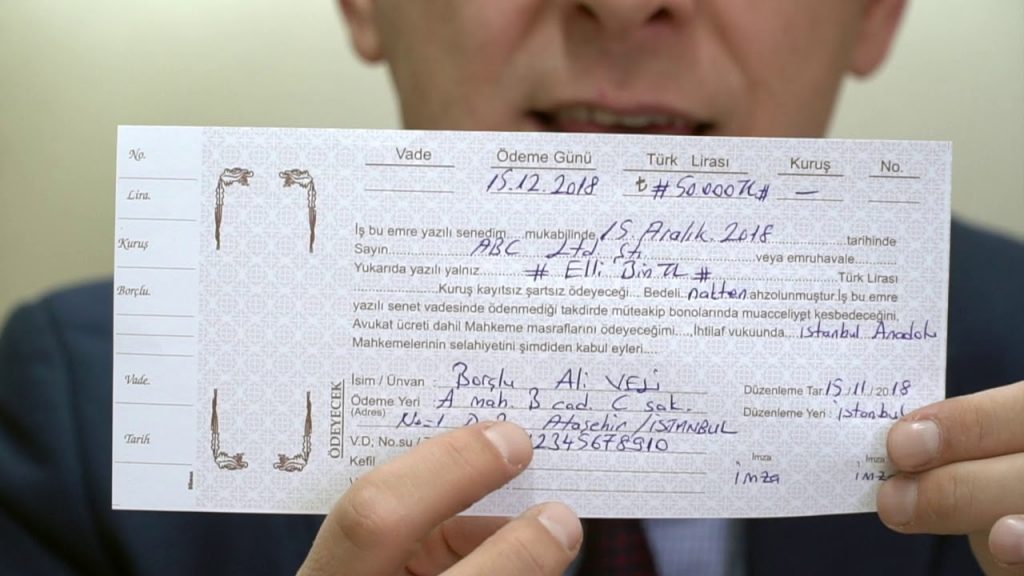 No.
Lira.
Kuruş
Borçlu.
Vade.
Tarih
Vade Ödeme Günü Türk Lirası Kuruş No.
15.12.2018 ₺ #50.000TL# —
İş bu emre yazılı senedim.....mukabilinde 15. Aralık. 2018 tarihinde
Sayın ABC Ltd. Şti veya emruhavale
Yukarıda yazılı yalnız # Elli Bin TL # Türk Lirası
Kuruş kayıtsız şartsız ödeyeceği... Bedeli nakten ahzolunmuştur.İş bu emre
yazılı senet vadesinde ödenmediği takdirde müteakip bonolarında muacceliyet kesbedeceğini,
Avukat ücreti dahil Mahkeme masraflarını ödeyeceğimi....,İhtilaf vukuunda....istanbul Anadolu
Mahkemelerinin selahiyetini şimdiden kabul eyleri....
ÖDEYECEK
İsim / Ünvan : Borçlu Ali VELİ
Ödeme Yeri : A mah. B cad. C sok.
(Adres) No=1 Ataşehir/İSTANBUL
V.D; No.su / 12345678910
Kefil
Düzenleme Tar. 15/11/2018
Düzenleme Yeri : istanbul
İmza İmza
imza imza